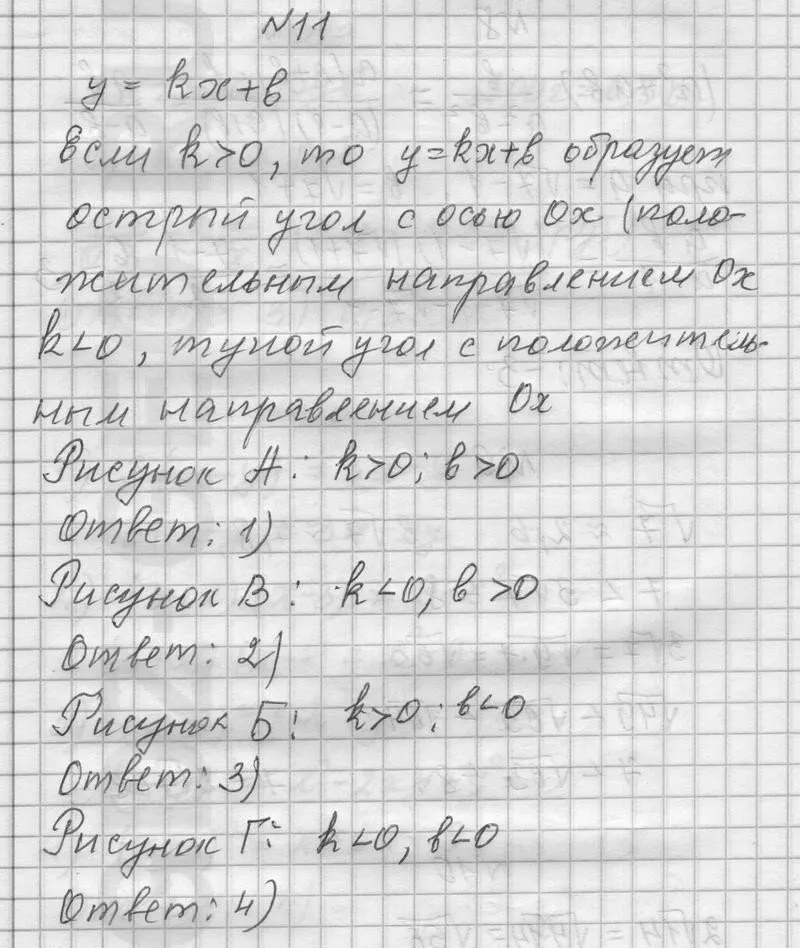 №11
y = kx+b
Если k>0, то y=kx+b образует
острый угол с осью Ox (поло-
жительным направлением Ox
k<0, тупой угол с положитель-
ным направлением Ox
Рисунок А: k>0; b>0
Ответ: 1)
Рисунок В: k<0, b>0
Ответ: 2)
Рисунок Б: k>0; b<0
Ответ: 3)
Рисунок Г: k<0, b<0
Ответ: 4)